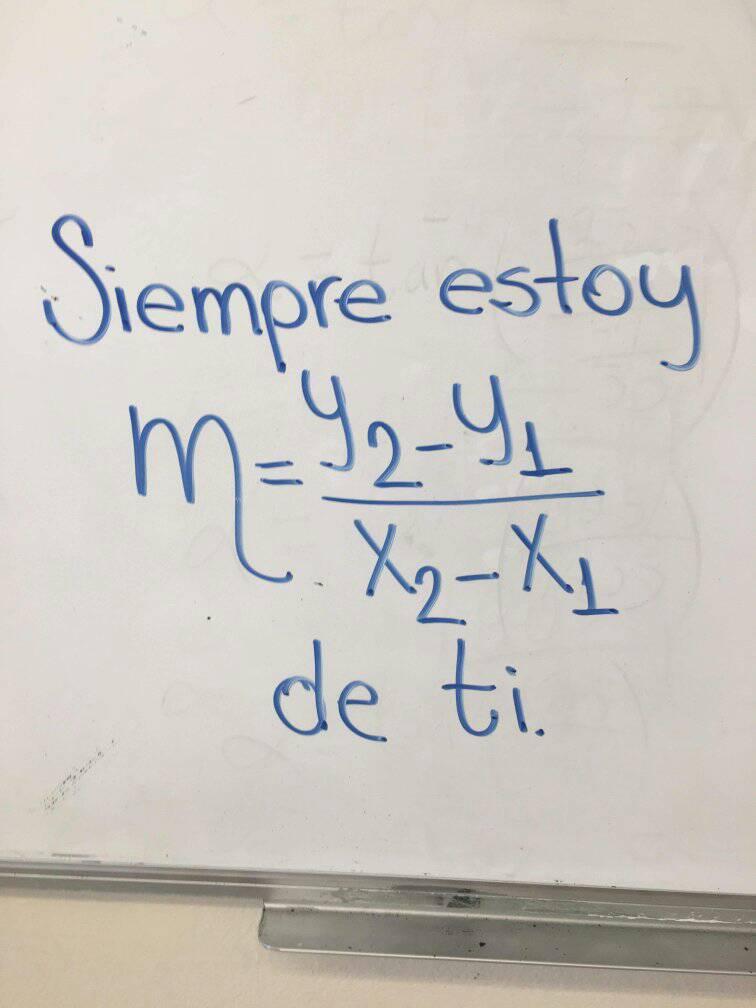 Siempre estoy
m = y₂ - y₁ / x₂ - x₁
de ti.